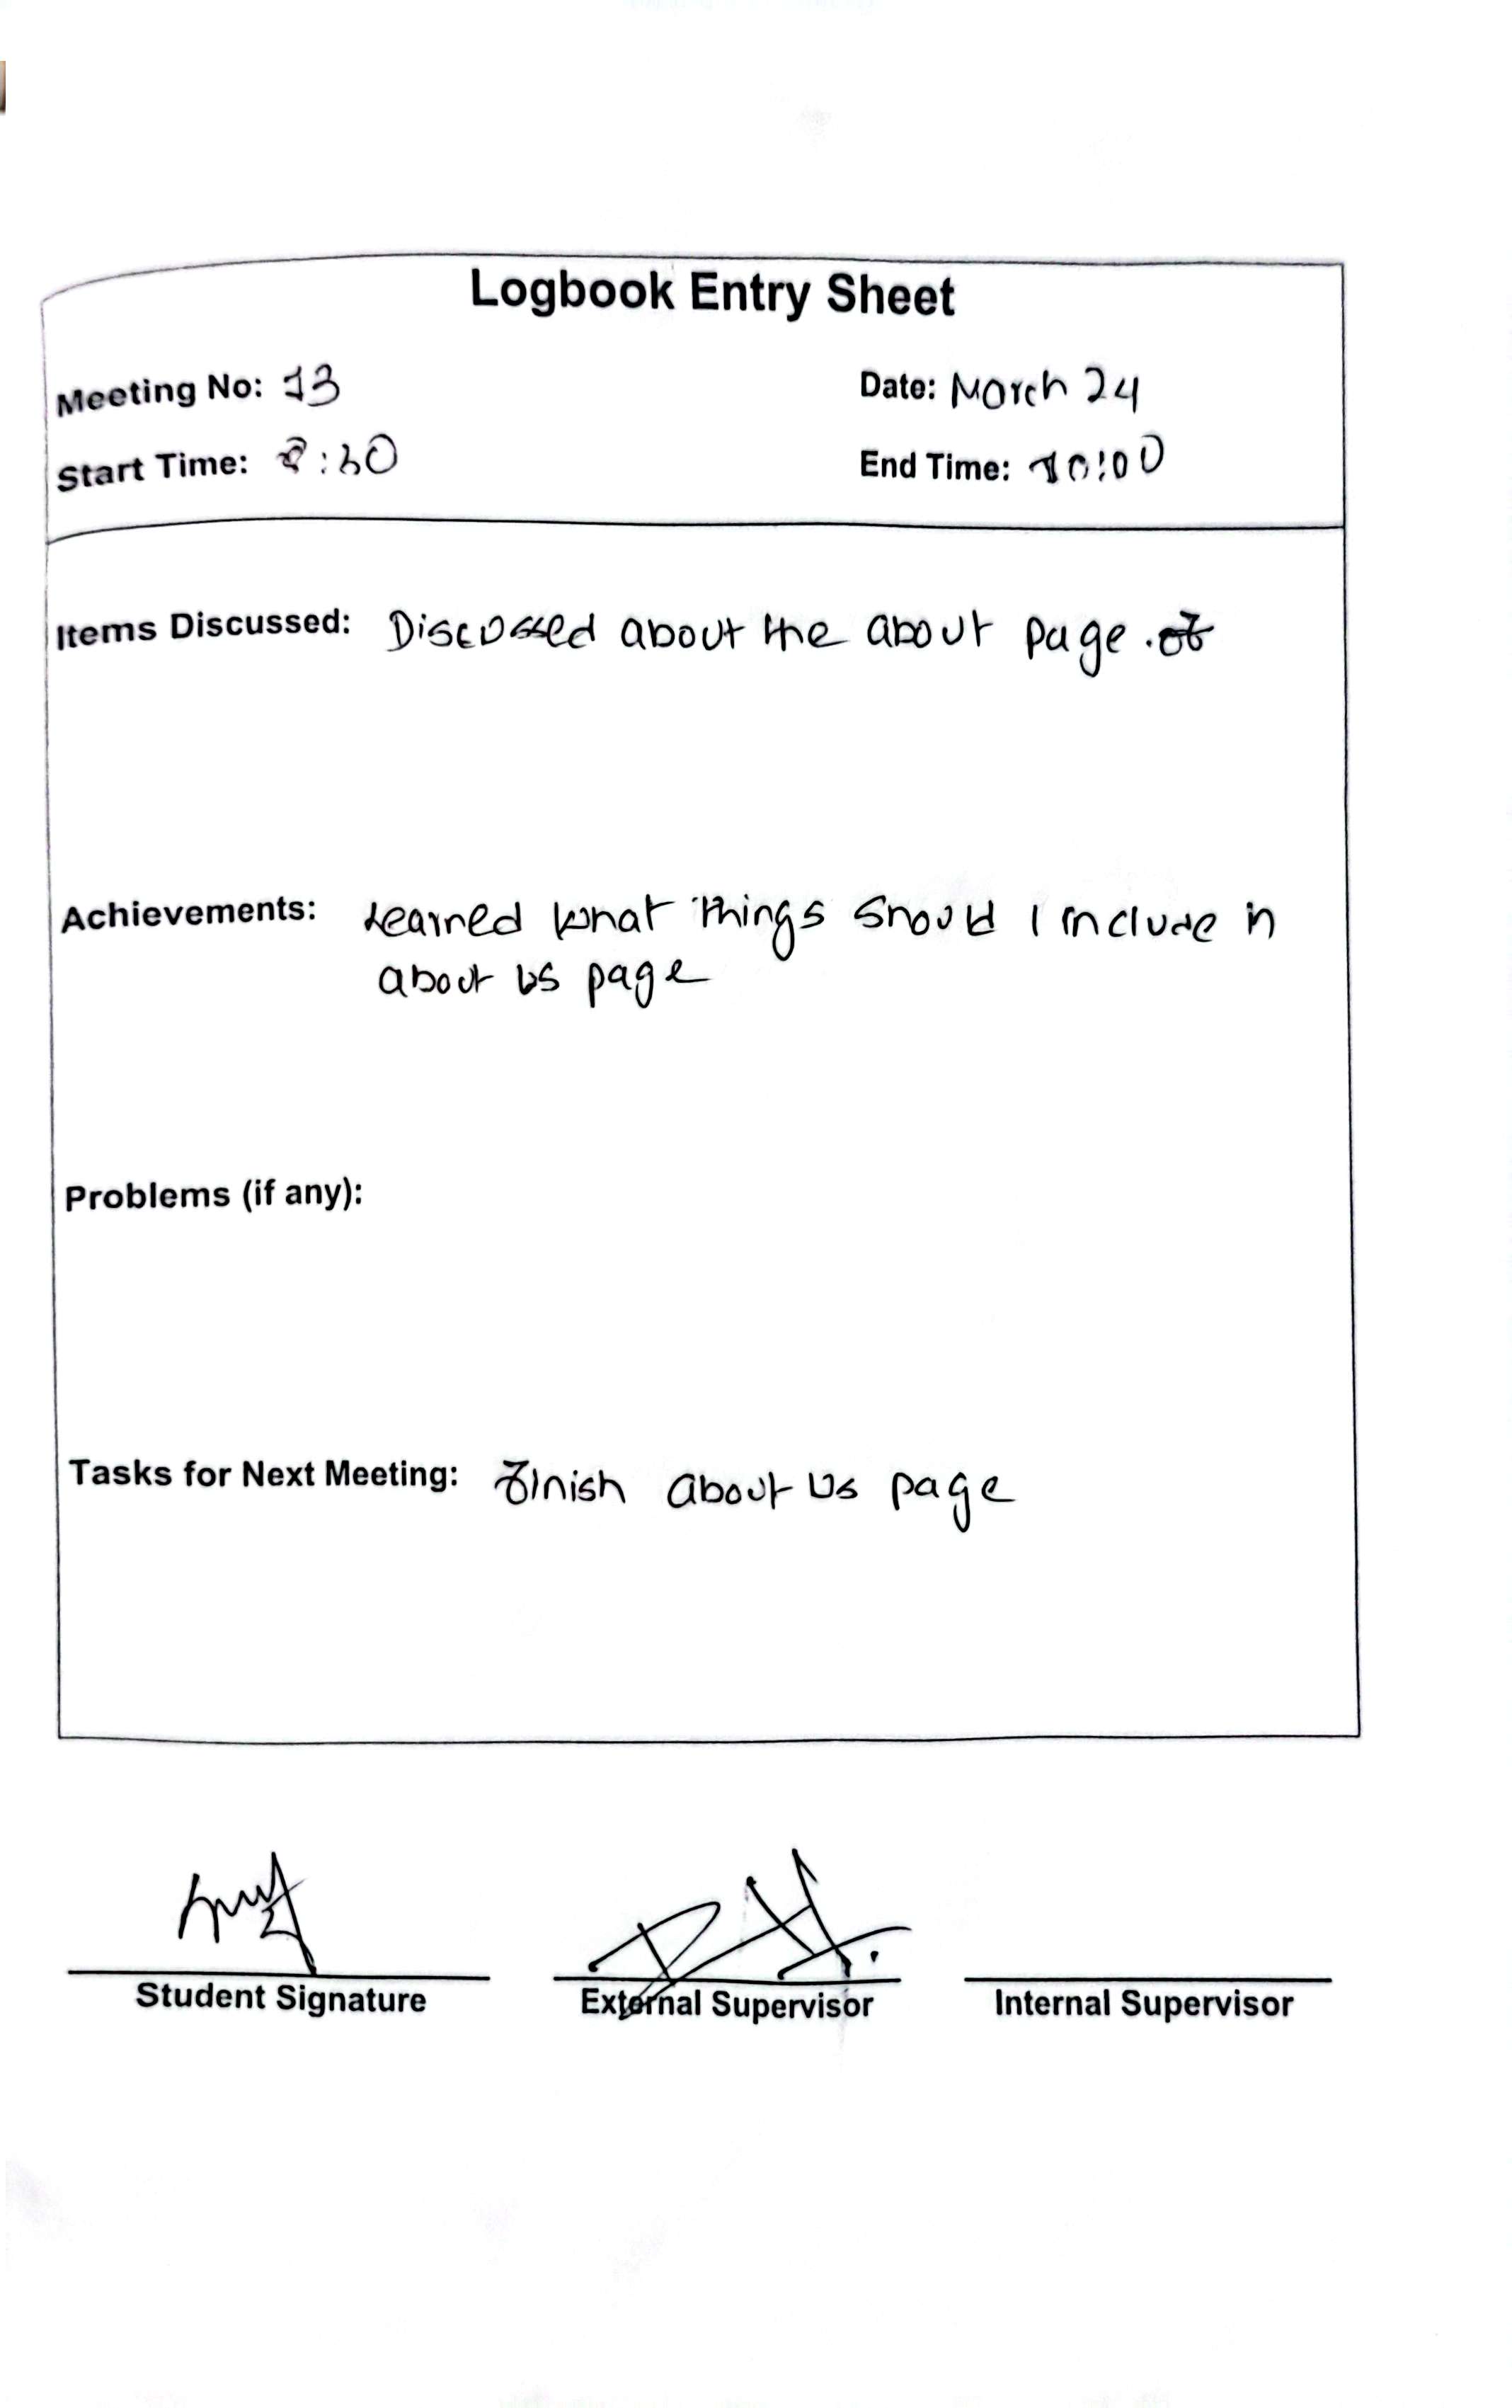 Logbook Entry Sheet
Meeting No: 13
Date: March 24
Start Time: :30
End Time: 10:00
Items Discussed: Discussed about the about page.
Achievements: Learned what things should I include in
about us page
Problems (if any):
Tasks for Next Meeting: Finish about us page
Student Signature
External Supervisor
Internal Supervisor